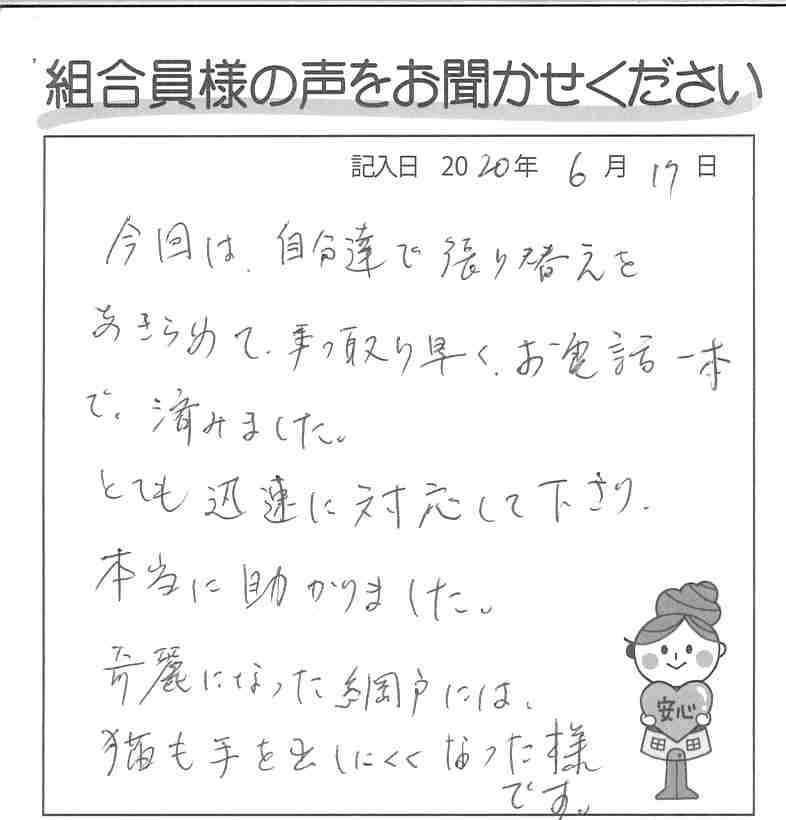 組合員様の声をお聞かせください
記入日 2020年 6月 17日
今回は、自分達で張り替えを
あきらめて、手っ取り早く、お電話一本
で、済みました。
とても迅速に対応して下さり、
本当に助かりました。
奇麗になった網戸には、
猫も手を出しにくくなった様
です。
安心